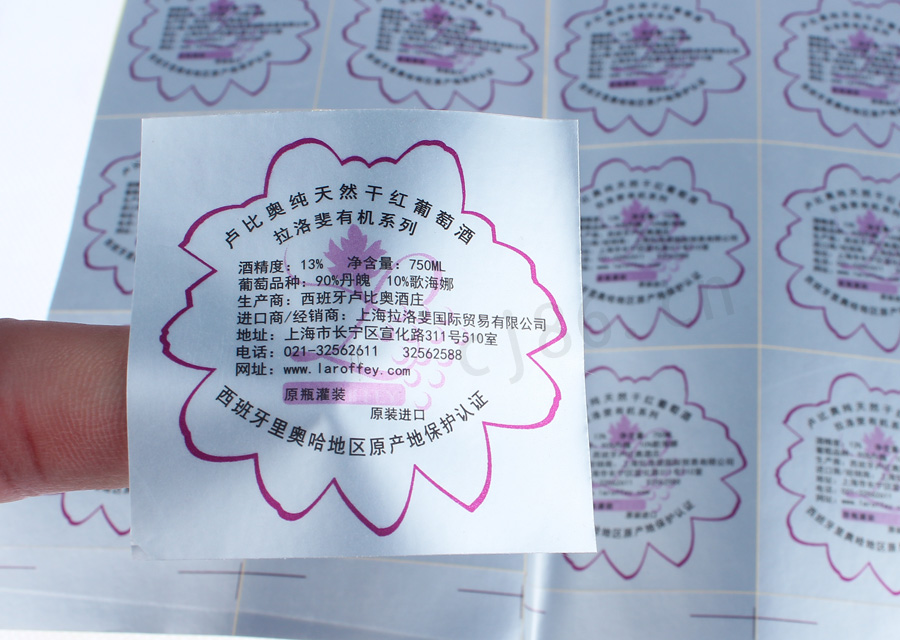 卢比奥纯天然干红葡萄酒
拉洛斐有机系列
酒精度：13% 净含量：750ML
葡萄品种：90%丹魄 10%歌海娜
生产商：西班牙卢比奥酒庄
进口商/经销商：上海拉洛斐国际贸易有限公司
地址：上海市长宁区宣化路311号510室
电话：021-32562611 32562588
网址：www.laroffey.com
原瓶灌装
原装进口
西班牙里奥哈地区原产地保护认证